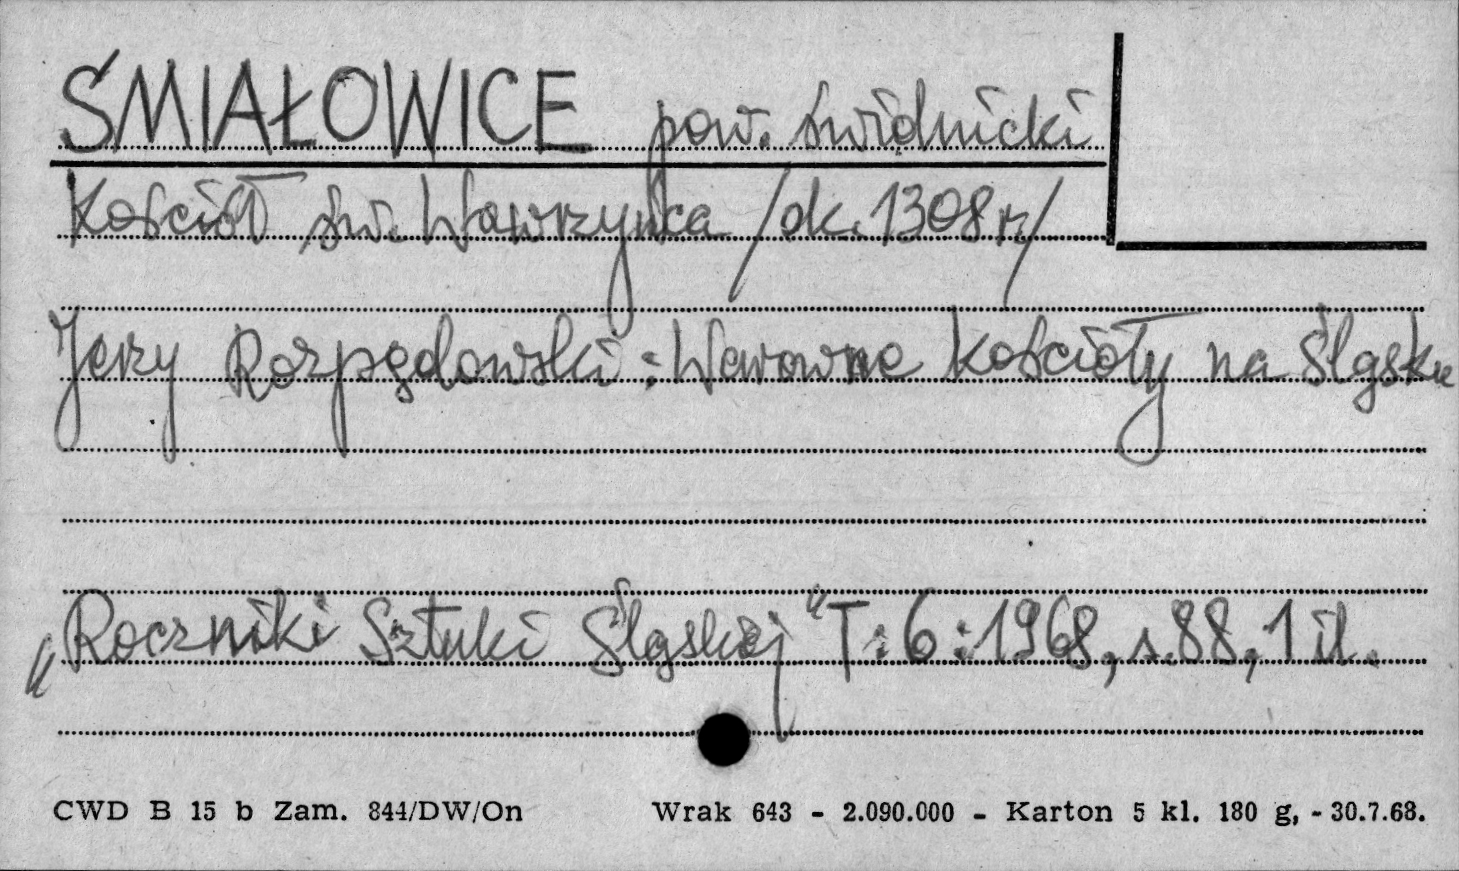 ŚMIAŁOWICE pow. świdnicki
Kościół św. Wawrzyńca /ok. 1308 r/
Jerzy Rozpędowski : Warowne kościoły na Śląsku
„Roczniki Sztuki Śląskiej" T: 6 : 1968, s. 88, 1 il.
CWD B 15 b Zam. 844/DW/On Wrak 643 - 2.090.000 - Karton 5 kl. 180 g, - 30.7.68.